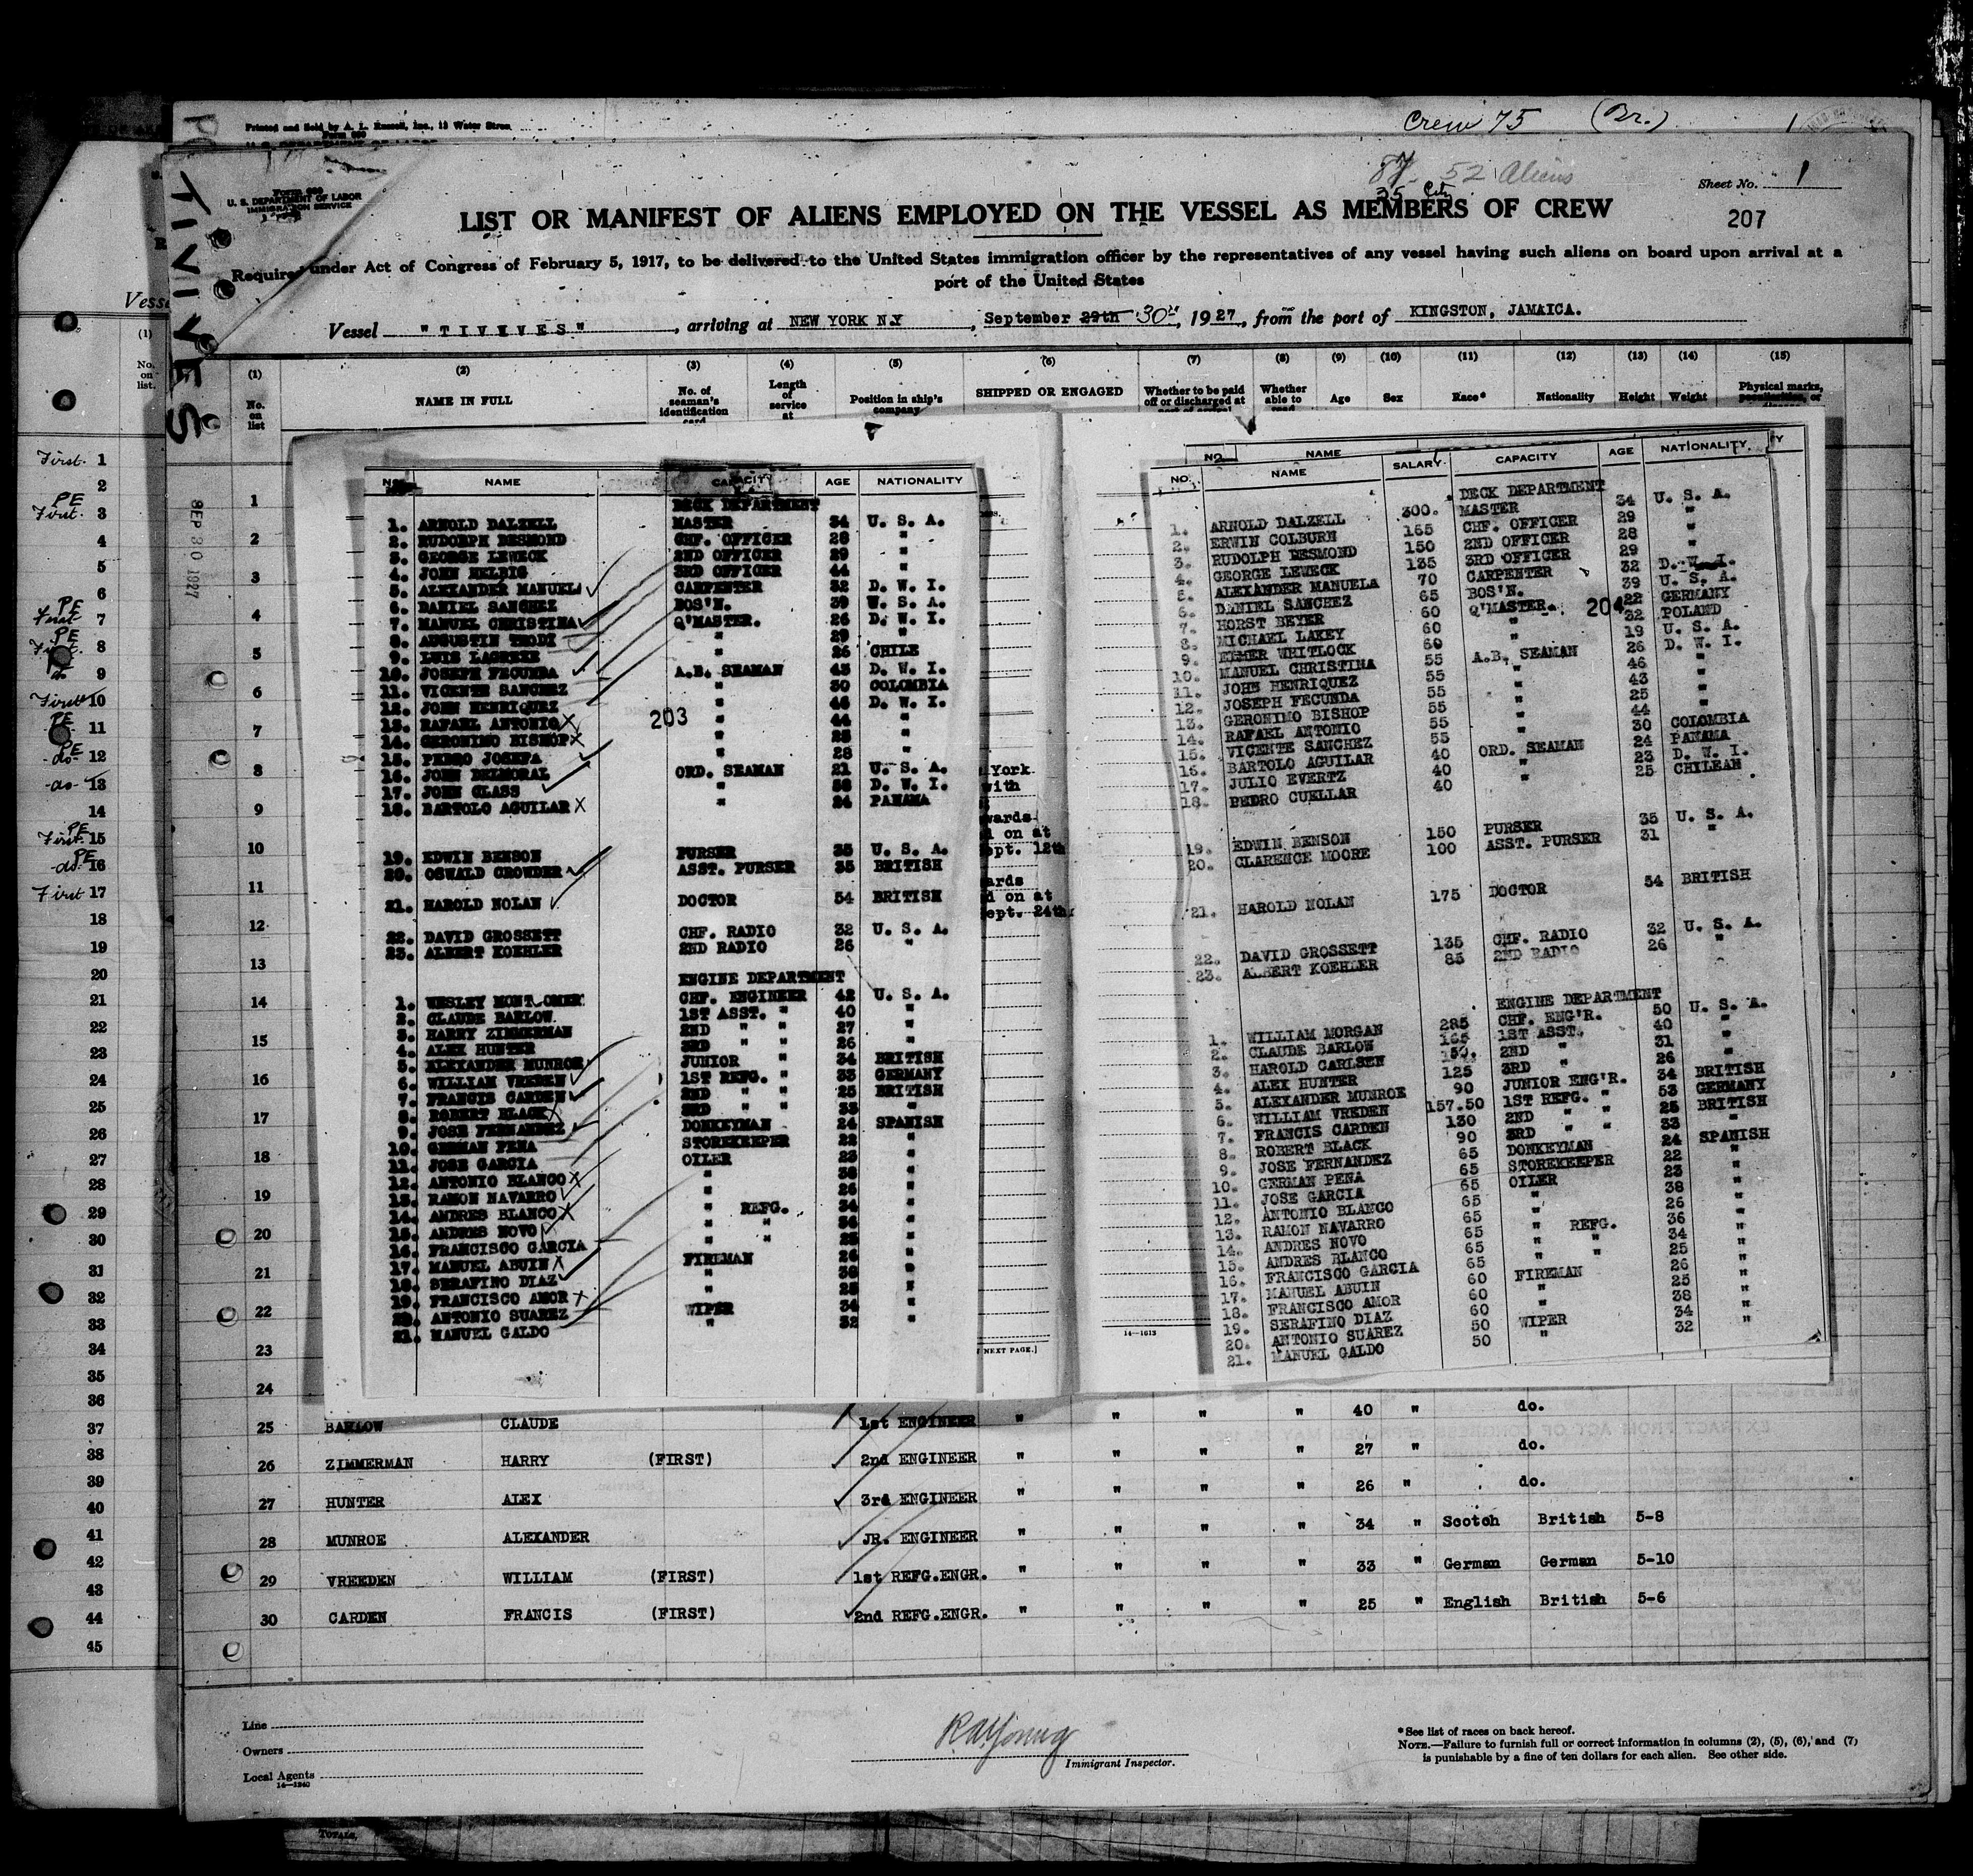 Printed and Sold by A. L. Russell, Inc., 13 Water Street
Crew 75 (Br.) 1
87 52 Aliens
35 City
Form 680
U. S. DEPARTMENT OF LABOR
IMMIGRATION SERVICE
Sheet No. 1
LIST OR MANIFEST OF ALIENS EMPLOYED ON THE VESSEL AS MEMBERS OF CREW
207
TIVIVES
Required under Act of Congress of February 5, 1917, to be delivered to the United States immigration officer by the representatives of any vessel having such aliens on board upon arrival at a
port of the United States
Vessel "TIVIVES", arriving at NEW YORK N.Y, September 29th 30th, 1927, from the port of KINGSTON, JAMAICA.
(1) (2) (3) (4) (5) (6) (7) (8) (9) (10) (11) (12) (13) (14) (15)
No. on list NAME IN FULL No. of seaman's identification card Length of service at Position in ship's company SHIPPED OR ENGAGED Whether to be paid off or discharged at port of arrival Whether able to read Age Sex Race* Nationality Height Weight Physical marks, peculiarities, or disease
SEP 30 1927
NO. NAME CAPACITY AGE NATIONALITY
DECK DEPARTMENT
1. ARNOLD DALZELL MASTER 34 U. S. A.
2. RUDOLPH DESMOND CHF. OFFICER 28 "
3. GEORGE LEWECK 2ND OFFICER 29 "
4. JOHN HELBIG 3RD OFFICER 44 "
5. ALEXANDER MANUELA CARPENTER 32 D. W. I.
6. DANIEL SANCHEZ BOS'N. 39 U. S. A.
7. MANUEL CHRISTINA Q'MASTER. 26 D. W. I.
8. AUGUSTIN THODI " 29 "
9. LUIS LAGREZE " 26 CHILE
10. JOSEPH FECUNDA A.B. SEAMAN 43 D. W. I.
11. VICENTE SANCHEZ " 30 COLOMBIA
12. JOHN HENRIQUEZ " 46 D. W. I.
13. RAFAEL ANTONIO X " 44 "
14. GERONIMO BISHOP X " 25 "
15. PEDRO JOSEFA " 28 "
16. JOHN BELMORAL ORD. SEAMAN 21 U. S. A.
17. JOHN GLASS " 38 D. W. I.
18. BARTOLO AGUILAR X " 24 PANAMA
203
19. EDWIN BENSON PURSER 35 U. S. A.
20. OSWALD CROWDER ASST. PURSER 35 BRITISH
21. HAROLD NOLAN DOCTOR 54 BRITISH
22. DAVID GROSSETT CHF. RADIO 32 U. S. A.
23. ALBERT KOEHLER 2ND RADIO 26 "
ENGINE DEPARTMENT
1. WESLEY MONTGOMERY CHF. ENGINEER 42 U. S. A.
2. CLAUDE BARLOW 1ST ASST. " 40 "
3. HARRY ZIMMERMAN 2ND " " 27 "
4. ALEX HUNTER 3RD " " 26 "
5. ALEXANDER MUNROE JUNIOR " 34 BRITISH
6. WILLIAM VREDEN 1ST REFG. " 33 GERMANY
7. FRANCIS CARDEN 2ND " " 25 BRITISH
8. ROBERT BLACK X 3RD " " 33 "
9. JOSE FERNANDEZ DONKEYMAN 24 SPANISH
10. GERMAN PENA STOREKEEPER 22 "
11. JOSE GARCIA OILER 23 "
12. ANTONIO BLANCO X " 38 "
13. RAMON NAVARRO " 26 "
14. ANDRES BLANCO X " REFG. 34 "
15. ANDRES NOVO " " 36 "
16. FRANCISCO GARCIA " " 25 "
17. MANUEL ABUIN X FIREMAN 26 "
18. SERAFINO DIAZ " 38 "
19. FRANCISCO AMOR X " 25 "
20. ANTONIO SUAREZ WIPER 34 "
21. MANUEL GALDO " 32 "
York
with
wards
d on at
ept. 12th
ards
d on at
ept. 24th
NEXT PAGE.]
14—1613
NO. NAME AGE NATIONALITY
NO. NAME SALARY. CAPACITY AGE NATIONALITY
DECK DEPARTMENT
1. ARNOLD DALZELL 300. MASTER 34 U. S. A.
2. ERWIN COLBURN 165 CHF. OFFICER 29 "
3. RUDOLPH DESMOND 150 2ND OFFICER 28 "
4. GEORGE LEWECK 135 3RD OFFICER 29 "
5. ALEXANDER MANUELA 70 CARPENTER 32 D. W. I.
6. DANIEL SANCHEZ 65 BOS'N. 39 U. S. A.
7. HORST BEYER 60 Q'MASTER. 22 GERMANY
204
8. MICHAEL LAKEY 60 " 32 POLAND
9. ELMER WHITLOCK 60 " 19 U. S. A.
10. MANUEL CHRISTINA 55 A.B. SEAMAN 26 D. W. I.
11. JOHN HENRIQUEZ 55 " 46 "
12. JOSEPH FECUNDA 55 " 43 "
13. GERONIMO BISHOP 55 " 25 "
14. RAFAEL ANTONIO 55 " 44 "
15. VICENTE SANCHEZ 55 " 30 COLOMBIA
16. BARTOLO AGUILAR 40 ORD. SEAMAN 24 PANAMA
17. JULIO EVERTZ 40 " 23 D. W. I.
18. PEDRO CUELLAR 40 " 25 CHILEAN
19. EDWIN BENSON 150 PURSER 35 U. S. A.
20. CLARENCE MOORE 100 ASST. PURSER 31 "
21. HAROLD NOLAN 175 DOCTOR 54 BRITISH
22. DAVID GROSSETT 135 CHF. RADIO 32 U. S. A.
23. ALBERT KOEHLER 85 2ND RADIO 26 "
ENGINE DEPARTMENT
1. WILLIAM MORGAN 285 CHF. ENG'R. 50 U. S. A.
2. CLAUDE BARLOW 165 1ST ASST. 40 "
3. HAROLD CARLSEN 150. 2ND " 31 "
4. ALEX HUNTER 125 3RD " 26 "
5. ALEXANDER MUNROE 90 JUNIOR ENG'R. 34 BRITISH
6. WILLIAM VREDEN 157.50 1ST REFG. " 53 GERMANY
7. FRANCIS CARDEN 130 2ND " " 25 BRITISH
8. ROBERT BLACK 90 3RD " " 33 "
9. JOSE FERNANDEZ 65 DONKEYMAN 24 SPANISH
10. GERMAN PENA 65 STOREKEEPER 22 "
11. JOSE GARCIA 65 OILER 23 "
12. ANTONIO BLANCO 65 " 38 "
13. RAMON NAVARRO 65 " 26 "
14. ANDRES NOVO 65 " REFG. 36 "
15. ANDRES BLANCO 65 " " 34 "
16. FRANCISCO GARCIA 65 " " 25 "
17. MANUEL ABUIN 60 FIREMAN 26 "
18. FRANCISCO AMOR 60 " 25 "
19. SERAFINO DIAZ 60 " 38 "
20. ANTONIO SUAREZ 50 WIPER 34 "
21. MANUEL GALDO 50 " 32 "
25 BARLOW CLAUDE 1st ENGINEER " " " " 40 " do.
26 ZIMMERMAN HARRY (FIRST) 2nd ENGINEER " " " " 27 " do.
27 HUNTER ALEX 3rd ENGINEER " " " " 26 " do.
28 MUNROE ALEXANDER JR. ENGINEER " " " " 34 " Scotch British 5-8
29 VREEDEN WILLIAM (FIRST) 1st REFG.ENGR. " " " " 33 " German German 5-10
30 CARDEN FRANCIS (FIRST) 2nd REFG.ENGR. " " " " 25 " English British 5-6
Line
Owners
Local Agents
14—1240
R A Young
Immigrant Inspector.
*See list of races on back hereof.
NOTE.—Failure to furnish full or correct information in columns (2), (5), (6), and (7)
is punishable by a fine of ten dollars for each alien. See other side.
TOTALS,